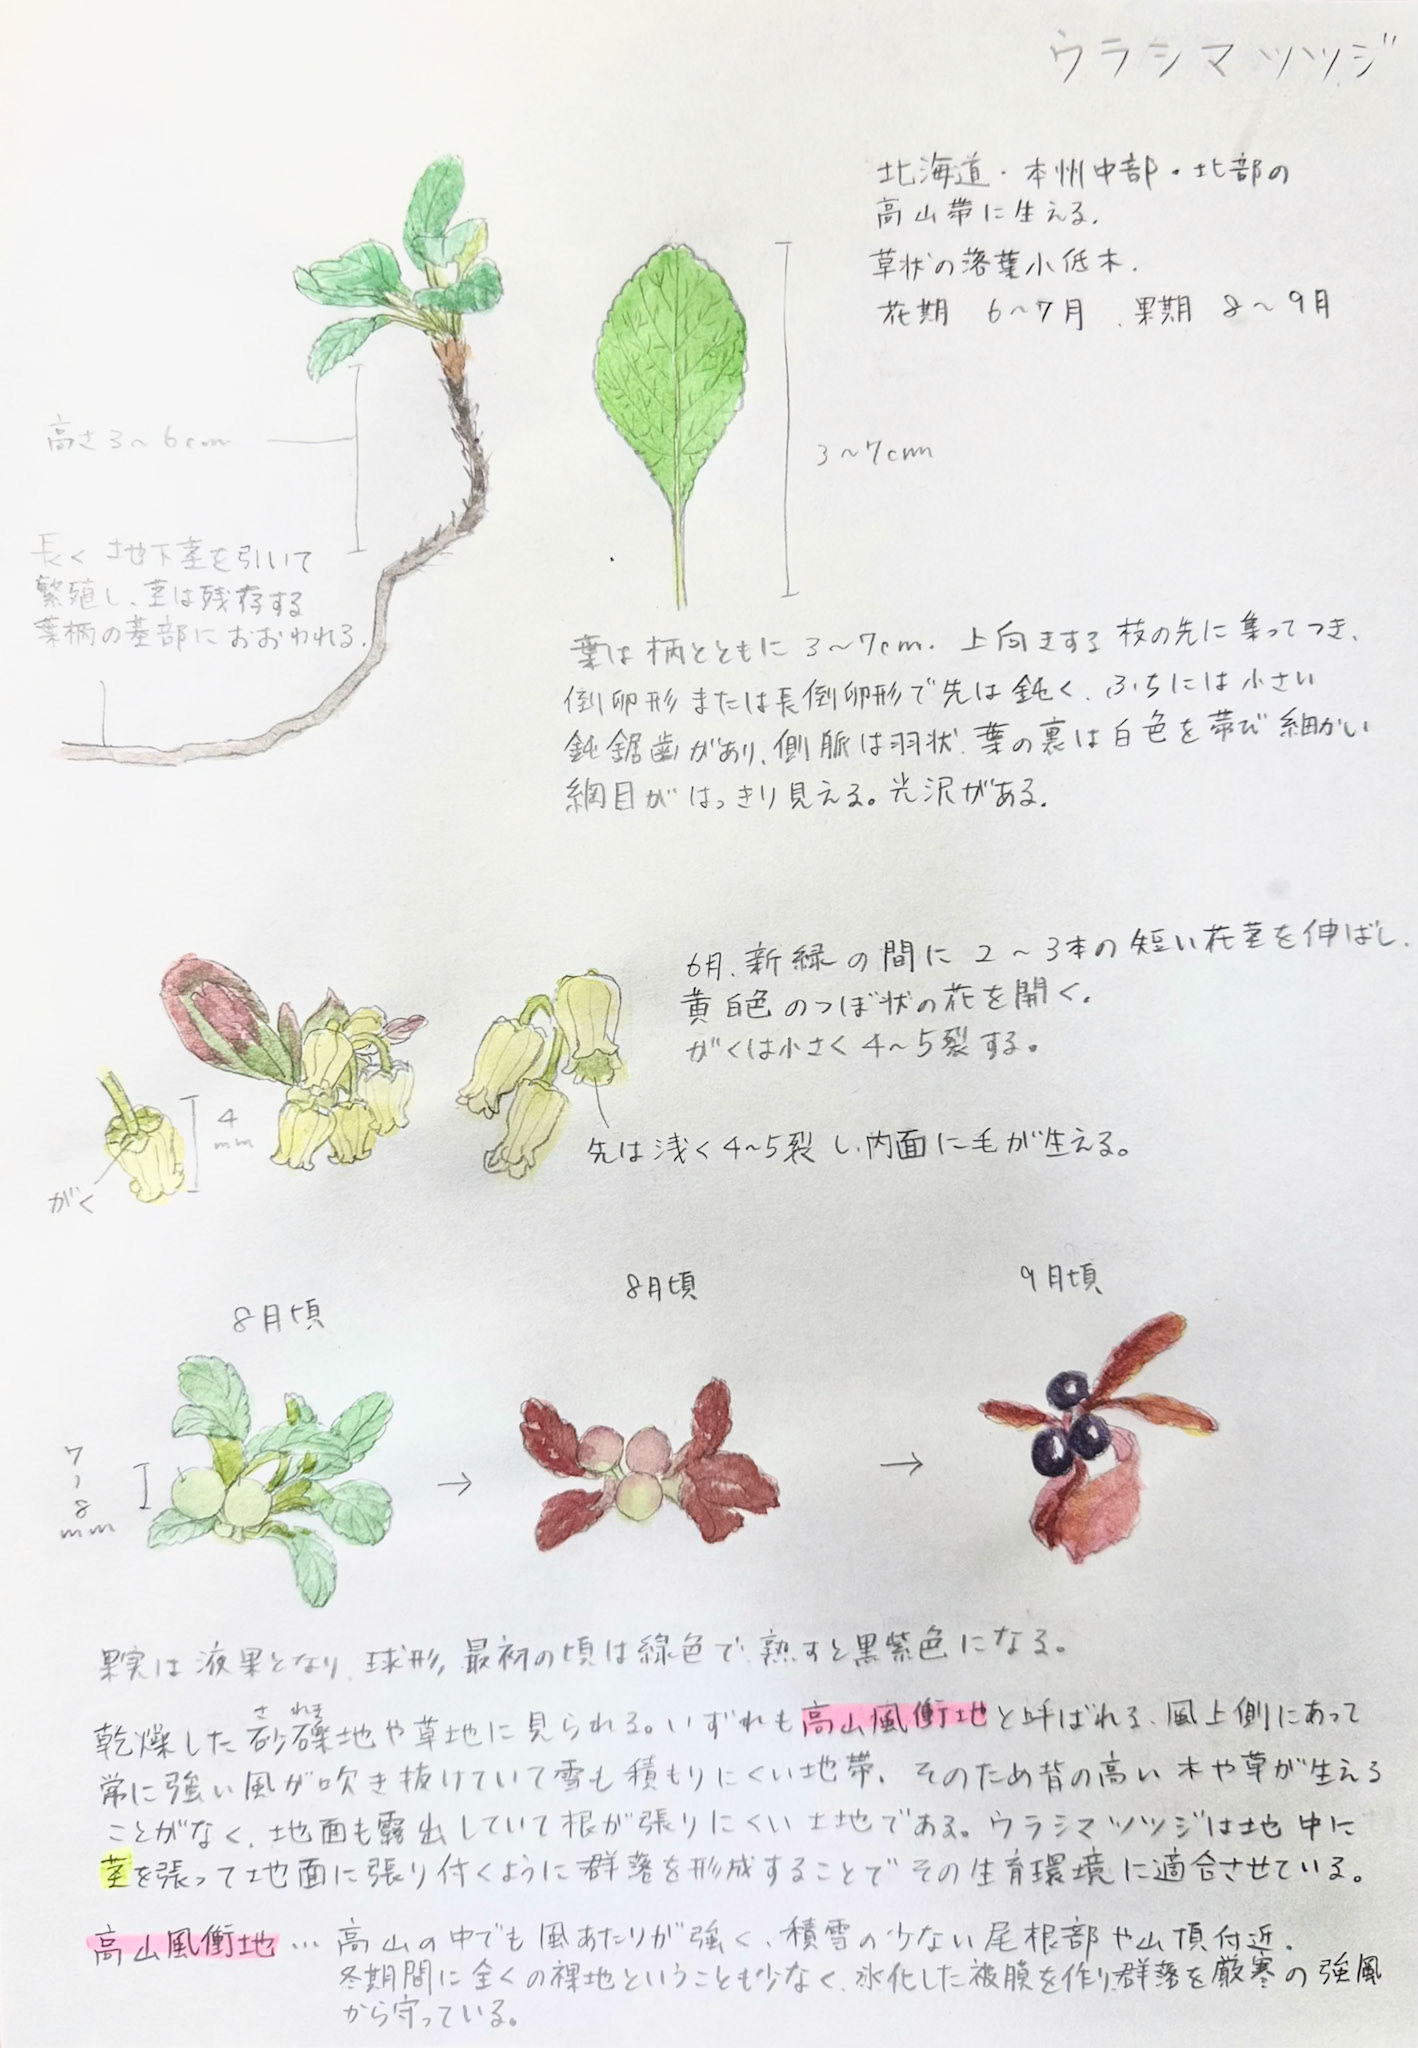 ウラシマツツジ
北海道・本州中部・北部の
高山帯に生える.
草状の落葉小低木.
花期 6〜7月、果期 8〜9月
高さ3〜6cm
3〜7cm
長く地下茎を引いて
繁殖し、茎は残存する
葉柄の基部におおわれる.
葉は柄とともに3〜7cm. 上向きする枝の先に集ってつき、
倒卵形または長倒卵形で先は鈍く、ふちには小さい
鈍鋸歯があり、側脈は羽状. 葉の裏は白色を帯び細かい
網目がはっきり見える。光沢がある.
6月、新緑の間に2〜3本の短い花茎を伸ばし、
黄白色のつぼ状の花を開く。
がくは小さく4〜5裂する。
4
mm
がく
先は浅く4〜5裂し、内面に毛が生える。
8月頃
8月頃
9月頃
7
〜
8
mm
→
→
果実は液果となり、球形, 最初の頃は緑色で、熟すと黒紫色になる。
さ れき
乾燥した砂礫地や草地に見られる。いずれも高山風衝地と呼ばれる、風上側にあって
常に強い風が吹き抜けていて雪も積もりにくい地帯. そのため背の高い木や草が生える
ことがなく、地面も露出していて根が張りにくい土地である。ウラシマツツジは地中に
茎を張って地面に張り付くように群落を形成することでその生育環境に適合させている。
高山風衝地… 高山の中でも風あたりが強く、積雪の少ない尾根部や山頂付近.
冬期間に全くの裸地ということも少なく、氷化した被膜を作り、群落を厳寒の強風
から守っている。